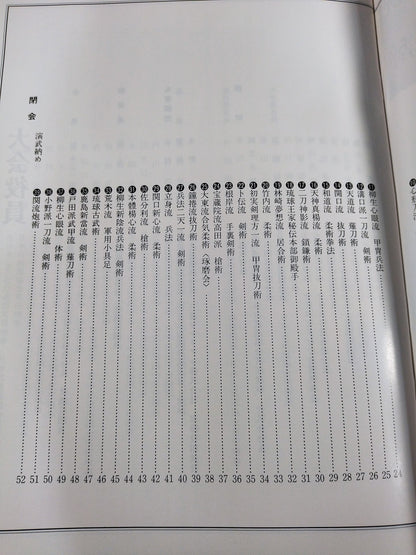 ⑪柳生心眼流 甲冑兵法……24
⑫溝口派一刀流 剣術……25
⑬天道流 薙刀術……26
⑭関口流 抜刀術……27
⑮和道流 柔術拳法……28
⑯天神真楊流 柔術……29
⑰二刀神影流 鎖鎌術……30
⑱琉球王家秘伝本部御殿手……31
⑲林崎夢想流 居合術……32
⑳竹内流 柔術……33
㉑初実剣理方一流 甲冑抜刀術……34
㉒卜伝流 剣術……35
㉓根岸流 手裏剣術……36
㉔宝蔵院流高田派 槍術……37
㉕大東流合気柔術〈琢磨会〉……38
㉖鐘捲流抜刀術……39
㉗兵法二天一流 剣術……40
㉘立身流 兵法……41
㉙関口新心流 柔術……42
㉚佐分利流 槍術……43
㉛本體楊心流 柔術……44
㉜柳生新陰流兵法 剣術……45
㉝荒木流 軍用小具足……46
㉞琉球古武術……47
㉟鹿島新當流 剣術……48
㊱戸田派武甲流 薙刀術……49
㊲柳生心眼流 体術……50
㊳小野派一刀流 剣術……51
㊴関流砲術……52
演武納め
閉会